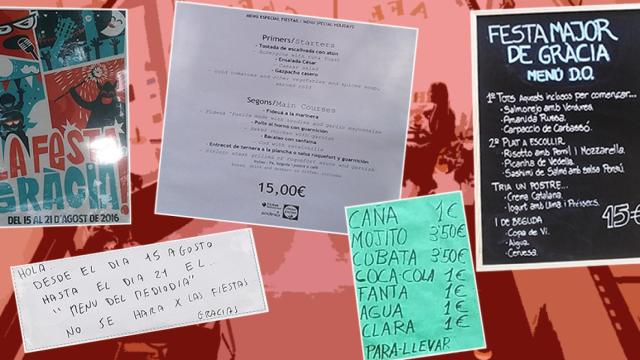 LA FESTA
GRÀCIA!
DEL 15 AL 21 D'AGOST DE 2016
MENÚ ESPECIAL FIESTAS / MENU SPECIAL HOLIDAYS
Primers/Starters
- Tostada de escalivada con atún
- Aubergine with tuna toast
- Ensalada César
- Caesar salad
- Gazpacho casero
cold tomatoes and other vegetables and spices soup,
served cold
Segons/Main Courses
- Fideuá a la marinera
- Pollo al horno con guarnición
- Baked chicken with garnish
- Bacalao con sanfaina
- Cod with ratatouille
- Entrecot de ternera a la plancha o salsa roquefort y guarnición
15,00€
FESTA MAJOR
DE GRÀCIA
MENÚ D.O.
1º Tots Aquests inclosos per començar...
- Salmorejo amb Verdures.
- Amanida Russa.
- Carpaccio de Carbassó.
2º PLAT A ESCOLLIR.
- Risotto amb Pernil i Mozzarella.
- Picanha de Vedella.
- Sashimi de Salmó amb salsa Ponzu.
TRIA UN POSTRE...
- Crema Catalana
- Iogurt amb Llima i
I DE BEGUDA
- Copa de Vi.
- Aigua.
- Cervesa.
15€
HOLA..
DESDE EL DIA 15 AGOSTO
HASTA EL DIA 21 EL..
"MENU DEL MEDIODIA"
NO SE HARA X LAS FIESTAS
GRACIAS
CAÑA 1€
MOJITO 3'50€
CUBATA 3'50€
COCA-COLA 1€
FANTA 1€
AGUA 1€
CLARA 1€
PARA-LLEVAR